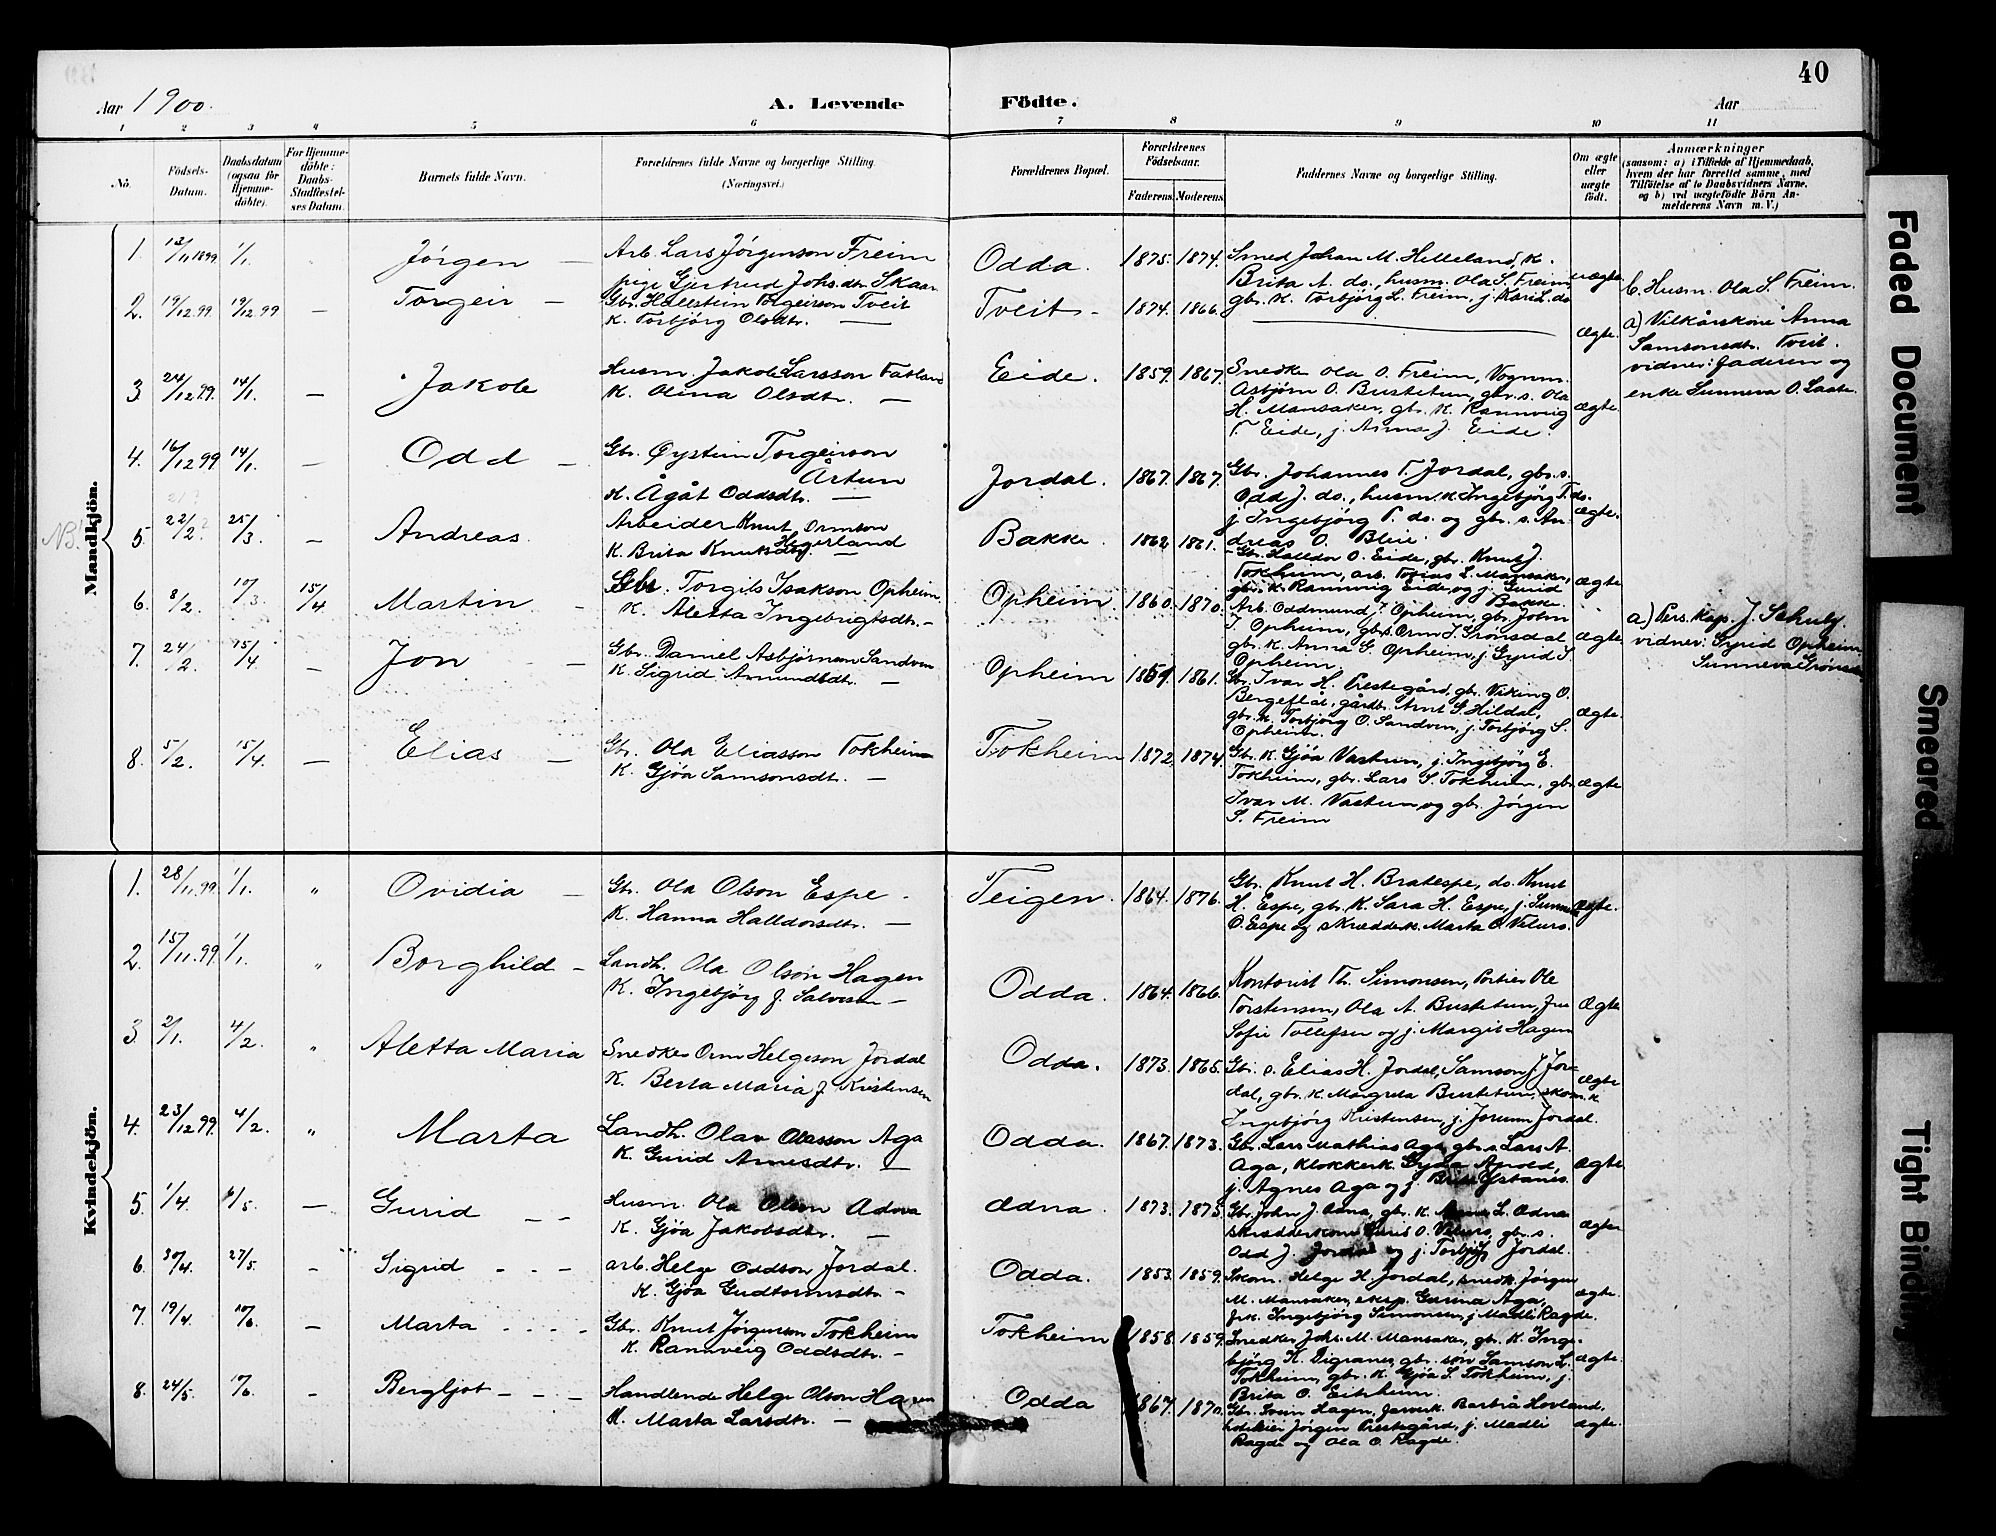 40
Aar 1900. A. Levende Födte. Aar
1 2 3 4 5 6 7 8 9 10 11
No. Födsels-Datum. Daabsdatum (ogsaa for Hjemme-döbte). For Hjemme-döbte: Daabs-Stadfæstel-ses Datum. Barnets fulde Navn. Forældrenes fulde Navne og borgerlige Stilling. (Næringsvei.) Forældrenes Bopæl. Forældrenes Födselsaar. Faderens Moderens Faddernes Navne og borgerlige Stilling. Om ægte eller uægte födt. Anmærkninger (saasom: a) i Tilfælde af Hjemmedaab, hvem der har forrettet samme, med Tilföielse af to Daabsvidners Navne, og b) ved uægtefödte Börn An-melderens Navn m. V.)
Mandkjön.
1. 12/11 1899 1/1. Jörgen — Arb. Lars Jörgenson Freim
pige Gjertrud Johs.dtr. Skaar
Odda. 1875. 1874. Smed Johan M. Helleland, k.
Brita A. ds., husm. Ola S. Freim,
gbr. k. Torbjörg L. Freim, j. Kari L. ds.
uægte b. Husm. Ola S. Freim.
2. 19/12 99. 19/12 99 — Torgeir — Gbr. Hallstein Torgeirson Tveit
K. Torbjörg Olsdtr. —
Tveit - 1874. 1866. ægte. a) Vilkårskone Anna
Samsonsdtr. Tveit.
vidner: faderen og
enke Sunneva O. Laate.
3 24/12 99. 14/1. — Jakob Husm. Jakob Larsson Fatland
K. Olina Olsdtr. —
Eide. 1859. 1867. Snedker Ola O. Freim, Vognm.
Asbjörn O. Bustetun, gbr. s. Ola
H. Mansaker, gbr. k. Rannveig
T. Eide, j. Anna J. Eide.
ægte.
4. 16/12 99 14/1. — Odd — Gbr. Øystein Torgeirson
Årtun
K. Ågåt Oddsdtr. —
Jordal. 1867. 1867. Gbr. Johannes T. Jordal, gbr. s.
Odd J. ds., husm. k. Ingebjörg T. ds.
j. Ingebjörg T. ds. og gbr. s. An-
dreas O. Bleie
ægte.
NB! 5. 22/2. 25/3. — Andreas. Arbeider Knut Ormson
Hegerland
K. Brita Knutsdtr. —
Bakke. 1862 1861. Gbr. Halldor O. Eide, gbr. Knut J.
Tokheim, arb. Tobias L. Mansaker,
gbr. k. Rannveig Eide, og j. Gurid
Bakke.
ægte
6. 8/2. 10/3. 15/4. Martin — Gbr. Torgils Isakson Opheim
K. Aletta Ingebrigtsdtr. -
Opheim. 1860. 1870. Arb. Oddmund T. Opheim, gbr. John
I. Opheim, gbr. s. Orm I. Grönsdal
gbr. k. Anna G. Opheim, j. Gyrid S.
Opheim.
ægte a) Pers. kap. J. Schuly.
vidner: Gyrid Opheim
Sunneva Grönsdal
7. 24/2. 15/4. — Jon - Gbr. Daniel Asbjörnson Sandven
K. Sigrid Åmundsdtr. —
Opheim 1859. 1861. Gbr. Ivar H. Prestegård, gbr. Viking O.
Bergeflåt, gårdbr. Arnt G. Hildal,
gbr. k. Torbjörg O. Sandven, j. Torbjörg S.
Opheim.
ægte.
8. 5/2. 15/4. — Elias — Gbr. Ola Eliasson Tokheim
K. Gjöa Samsonsdtr. —
Tokheim 1872. 1874. Gbr. K. Gjöa Vastun, j. Ingebjörg E.
Tokheim, gbr. Lars S. Tokheim, gbr.
Ivar M. Vastun og gbr. Jörgen
S. Freim
ægte
Kvindekjön.
1. 28/11 99. 1/1. " Ovidia — Gbr. Ola Olson Espe -
K. Hanna Halldorsdtr. —
Teigen. 1864. 1876. Gbr. Knut H. Bratespe, ds. Knut
H. Espe, gbr. K. Sara H. Espe, j. Sunneva
O. Espe og skrædderk. Marta O. Vilurs.
ægte.
2. 15/11. 99. 1/1. " Borghild - Landh. Ola Olson Hagen
K. Ingebjörg f. Salvesen —
Odda. 1864. 1866. Kontorist Th. Simonsen, Portier Ole
Torstensen, Ola A. Bustetun, fru
Sofie Tollefsen og j. Margit Hagen
ægte
3. 2/1. 4/2. " Aletta Maria Snedker Orm Helgeson Jordal
K. Berta Maria f. Kristensen
Odda. 1873. 1865. Gbr. s. Elias H. Jordal, Samson J. Jor-
dal, gbr. k. Margreta Bustetun, skom. k.
Ingebjörg Kristensen, j. Jorunn Jordal.
ægte
4. 23/12 99. 4/2. " Marta Landh. Olav Olasson Aga
K. Gurid Arnesdtr. —
Odda. 1867. 1873. Gbr. Lars Mathias Aga, gbr. s. Lars A.
Aga, klokkerk. Gyda Apold,
j. Agnes Aga og j. Brita Ystanes.
ægte
5. 1/4. 6/5. — Gurid - - Husm. Ola Olson Adna
K. Gjöa Jakobsdtr. —
Ædna. 1873. 1875. Gbr. John J. Ædna, gbr. K. Anna L. Ædna
skrædderkone Guri O. Vilurs, gbr. s.
Odd J. Jordal og j. Torbjörg Jordal.
ægte
6. 30/4. 27/5. - Sigrid - - - arb. Helge Oddson Jordal.
K. Gjöa Gudtormsdtr. -
Odda. 1853. 1859. Skom. Helge H. Jordal, snedk. Jörgen
M. Mansaker, eksp. Gurina Aga,
frk. Ingebjörg Simonsen, j. Madli Ragde.
ægte.
7. 19/4. 10/6. — Marta - - - - Gbr. Knut Jörgenson Tokheim
K. Rannveig Oddsdtr. -
Tokheim 1858. 1859. Snedker Johs. M. Mansaker, gbr. K. Inge-
björg K. Digranes, gbr. sön Samson L.
Tokheim, gbr. K. Gjöa S. Tokheim, j.
Brita O. Eitrheim.
ægte.
8. 24/5. 17/6. - Bergljot - - - Handlende Helge Olson Hagen
K. Marta Larsdtr. —
Odda 1867. 1870. Gbr. Svein Hagen, Barbrå Hovland,
hotelleier Jörgen Prestegård, j. Madli
Ragde og Ola O. Ragde.
ægte.
Faded Document
Smeared
Tight Binding